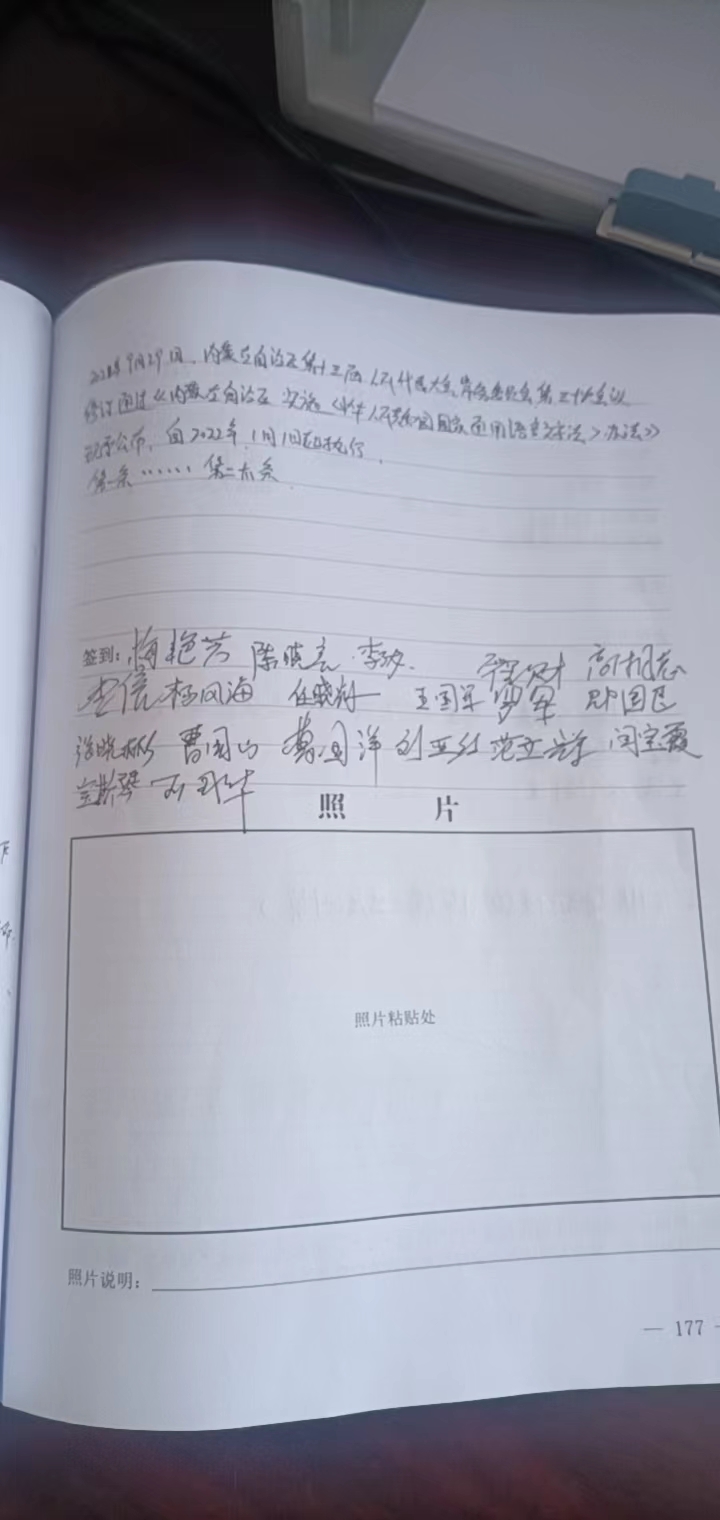 2021年9月29日，内蒙古自治区第十三届人民代表大会常务委员会第二十八会议
修订通过《内蒙古自治区实施〈中华人民共和国国家通用语言文字法〉办法》
现予公布，自2022年1月1日起施行.
第一条……第二十六条
签到：梅艳芳 陈晓 李 高
李信 杨凤海 任晓 王国军 罗军 国民
张晓 曹国 国洋 刘亚红 范亚 闫宝霞
宝斯琴
照 片
照片粘贴处
照片说明：
— 177 —